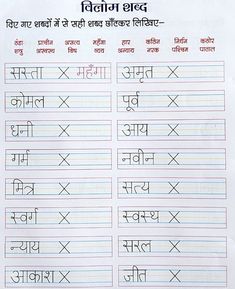 विलोम शब्द
दिए गए शब्दों में से सही शब्द छाँटकर लिखिए–
ठंडा प्राचीन असत्य महँगा हार कठिन निर्धन कठोर
शत्रु अस्वस्थ विष व्यय अन्याय नरक पश्चिम पाताल
सस्ता X महँगा अमृत X
कोमल X पूर्व X
धनी X आय X
गर्म X नवीन X
मित्र X सत्य X
स्वर्ग X स्वस्थ X
न्याय X सरल X
आकाश X जीत X